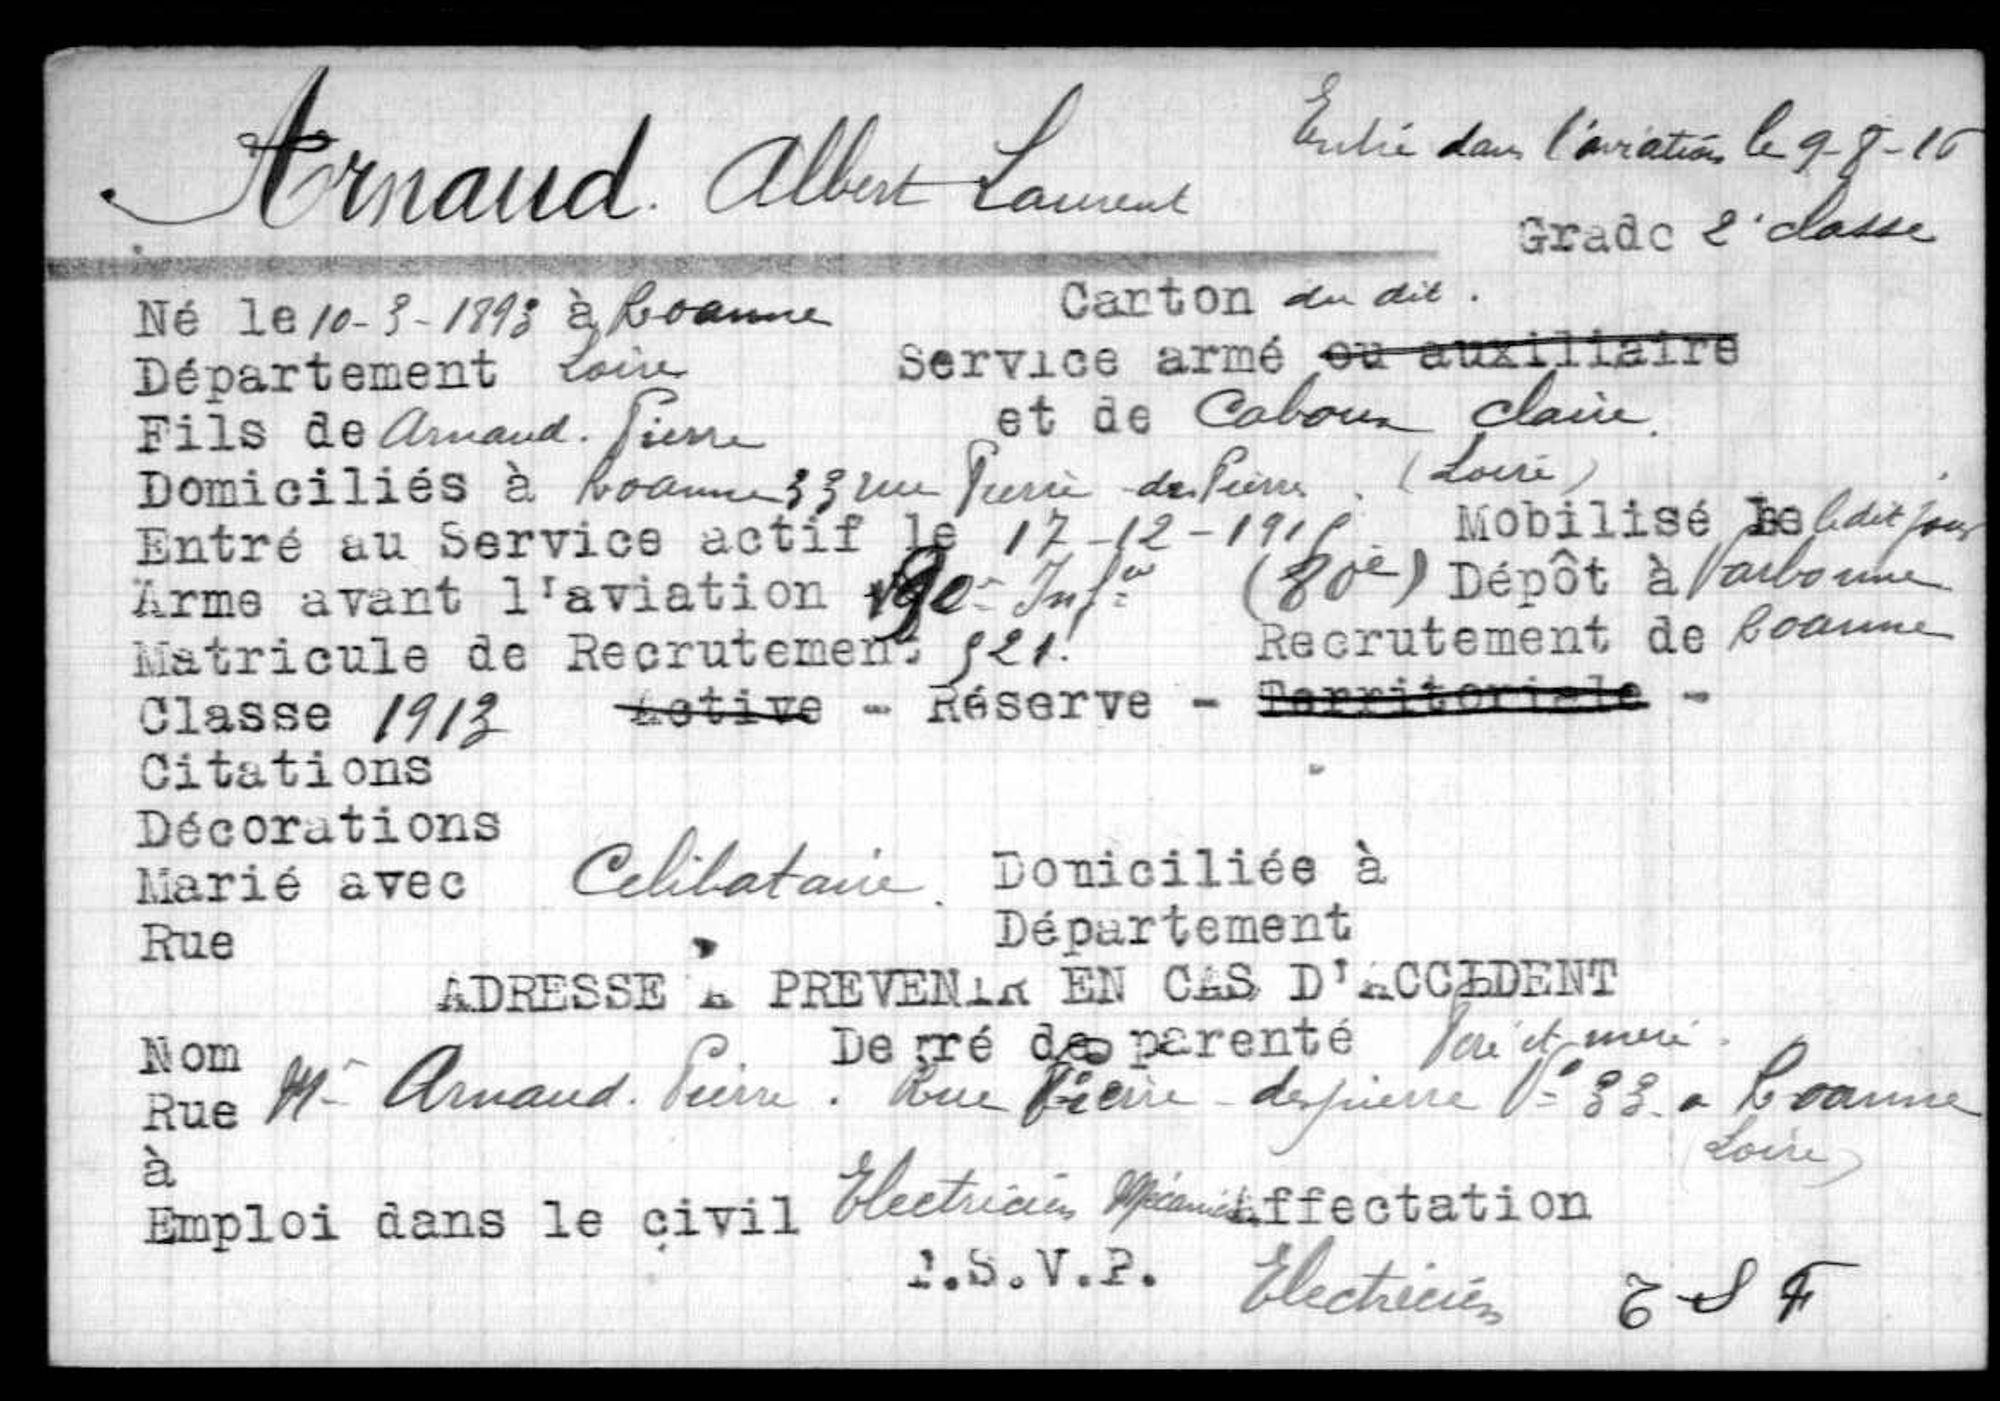 Arnaud. Albert Laurent
Entré dans l'aviation le 9-8-16
Grade 2e classe
Né le 10-3-1893 à Roanne Carton du dit.
Département Loire Service armé ou auxiliaire
Fils de Arnaud. Pierre et de Caboux Claire.
Domiciliés à Roanne 33 rue Pierre des Pierre. (Loire)
Entré au Service actif le 17-12-191 Mobilisé le dit jour
Arme avant l'aviation Infie (80e) Dépôt à Narbonne
Matricule de Recrutement 521. Recrutement de Roanne
Classe 1913 Active - Réserve - Territoriale -
Citations
Décorations
Marié avec Celibataire. Domiciliée à
Rue Département
ADRESSE A PREVENIR EN CAS D'ACCIDENT
Nom Degré de parenté Pere et mere.
Rue Mr Arnaud. Pierre. Rue Pierre-despierre No 33. a Roanne
à (Loire)
Emploi dans le civil Electricien Mécanicien Affectation
T.S.V.P. Electricien T S F